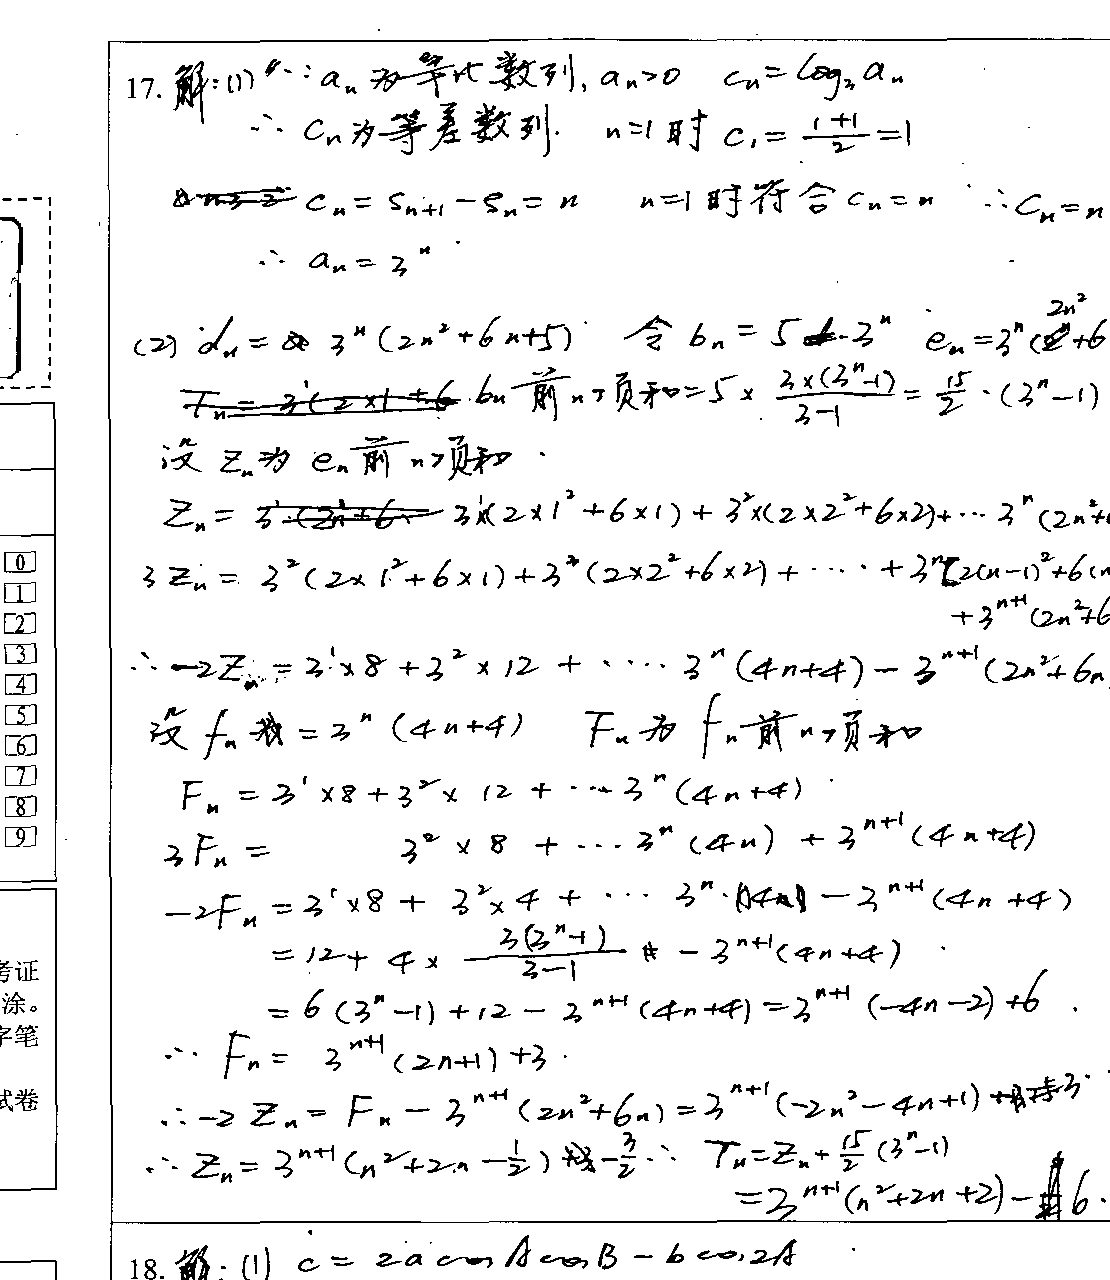 17. 解:(1) ∵ aₙ为等比数列, aₙ>0 cₙ=log₃aₙ
∴ cₙ为等差数列. n=1时 c₁=(1+1)/2=1
cₙ=Sₙ₊₁-Sₙ=n n=1时符合cₙ=n ∴Cₙ=n
∴ aₙ=3ⁿ
(2) dₙ= 3ⁿ(2n²+6n+5) 令 bₙ=5·3ⁿ eₙ=3ⁿ(2n²+6
bₙ前n项和=5×(3×(3ⁿ-1))/(3-1)=15/2·(3ⁿ-1)
设 Zₙ为 eₙ前n项和.
Zₙ= 3¹×(2×1²+6×1)+3²×(2×2²+6×2)+…3ⁿ(2n²+
3Zₙ= 3²(2×1²+6×1)+3³(2×2²+6×2)+……+3ⁿ[2(n-1)²+6(n
+3ⁿ⁺¹(2n²+6
∴-2Zₙ=3¹×8+3²×12+……3ⁿ(4n+4)-3ⁿ⁺¹(2n²+6n
设 fₙ=3ⁿ(4n+4) Fₙ为 fₙ前n项和
Fₙ=3¹×8+3²×12+…3ⁿ(4n+4)
3Fₙ= 3²×8+…3ⁿ(4n)+3ⁿ⁺¹(4n+4)
-2Fₙ=3¹×8+3²×4+…3ⁿ·4-3ⁿ⁺¹(4n+4)
=12+4×(3(3ⁿ-1))/(3-1)-3ⁿ⁺¹(4n+4)
=6(3ⁿ-1)+12-3ⁿ⁺¹(4n+4)=3ⁿ⁺¹(-4n-2)+6.
∴ Fₙ= 3ⁿ⁺¹(2n+1)+3.
∴-2Zₙ=Fₙ-3ⁿ⁺¹(2n²+6n)=3ⁿ⁺¹(-2n²-4n+1)+3
∴ Zₙ=3ⁿ⁺¹(n²+2n-1/2)-3/2 ∴ Tₙ=Zₙ+15/2(3ⁿ-1)
=3ⁿ⁺¹(n²+2n+2)-6.
18. 解:(1) c=2acosAcosB-bcos2A
0
1
2
3
4
5
6
7
8
9
考证
涂。
字笔
试卷